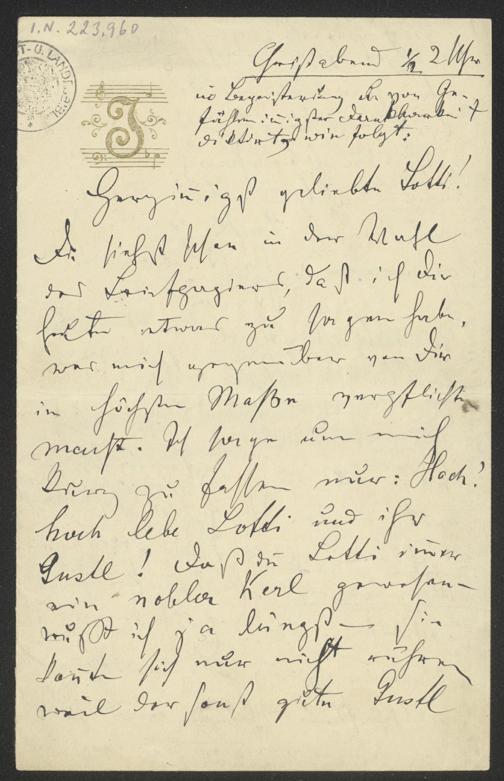 I.N. 223.960
T- U. LANDE
J
Christabend ½ 2 Uhr
in Begeisterung u. von Ge-
fühlen innigster Dankbarkeit
diktirt wie folgt:
Herzinnigst geliebte Lotti!
Du siehst schon in der Wahl
des Briefpapiers, daß ich Dir
heute etwas zu sagen habe,
was mich gegenüber von Dir
in höchstem Maße verpflichtet
macht. Ich sage um mich
kurz zu fassen nur: Hoch!
hoch lebe Lotti und ihr
Gustl! Daß du Lotti immer
ein nobler Kerl gewesen
wußt ich ja längst Sie
konnte sich nur nicht rühren
weil der sonst gute Gustl